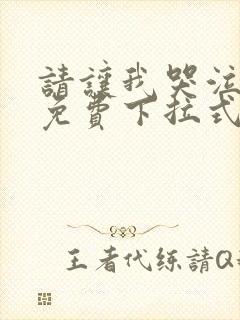 請讓我哭泣
免費下拉式
王者代练請Q